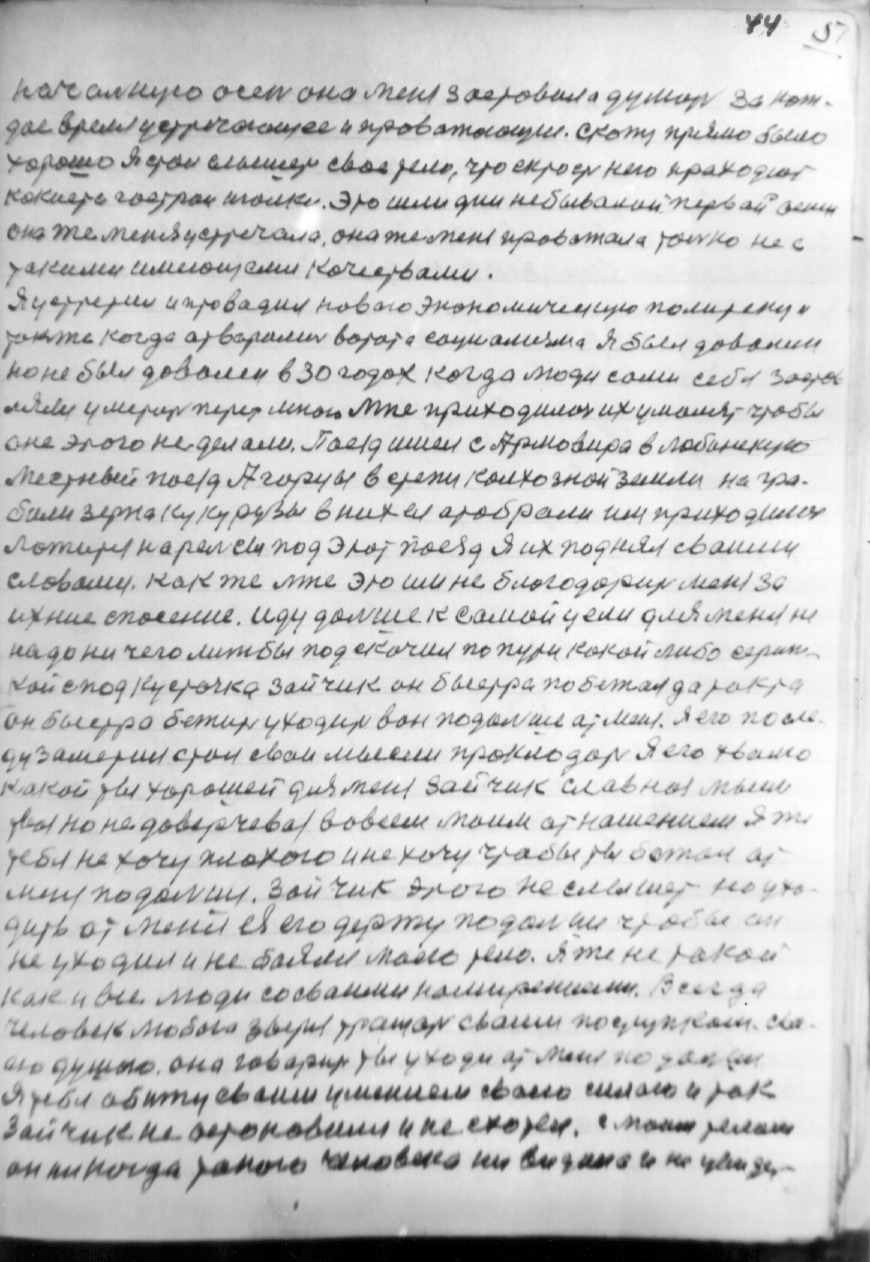 44 5
начальную осень она меня заставила думать За каж-
дое время устречающее и проважающие. скажу прямо было
хорошо Я стал слышать свае тело, что скрозь него праходят
какието гострои иголки. Это шли дни небывалай первай осени
она же меня устречала, она же меня праважала только не с
такими имеющеми качествами
Я устретил и провадил новаю экономическую политеку и
также когда атварялись варота социализма Я был даволин
но не был доволен в 30 годах когда люди сами себя застав
ляли умерать перет мною Мне приходилось их умолят чтобы
оне этого не делали. Поезд ишел с Армовира в лабинскую
местный поезд А горцы в степи колхозной земли на гра-
били зерна кукурузы в них ея атобрали им приходилось
ложится на рельсы под этот поезд Я их поднял сваими
словами. как же мне это или не благодарить меня за
ихние спасение. иду дальше к самой цели для меня не
надо ни чего лижбы подскочил по пути какой либо серинь-
кай с под кусточка зайчик он быстра побежал да так та
он быстра бежит уходит вон подальше ат меня. Я его после-
ду заметил стал сваи мысли прокладать Я его хвалю
какой ты хорошей для меня зайчик славная мыли
твоя но не даверчевая вовсем маим атнашением Я же
тебя не хочу плохого и не хочу чтобы ты бежал ат
меня подальши. Зайчик этого не слышет но ухо-
дить от меня ея его держу подальши чтобы он
не уходил и не баялся маего тела. Я же не такой
как и все люди со сваими намирениями. Всегда
человек любога зверя тращаят сваим поступкам. сва-
ею душою. она говарить ты уходи ат меня подальши
Я тебя абижу сваим умением сваею силаю и так
Зайчик не астоновился и не схател. с маим телам
он никогда такого человека ни видала и не увидет